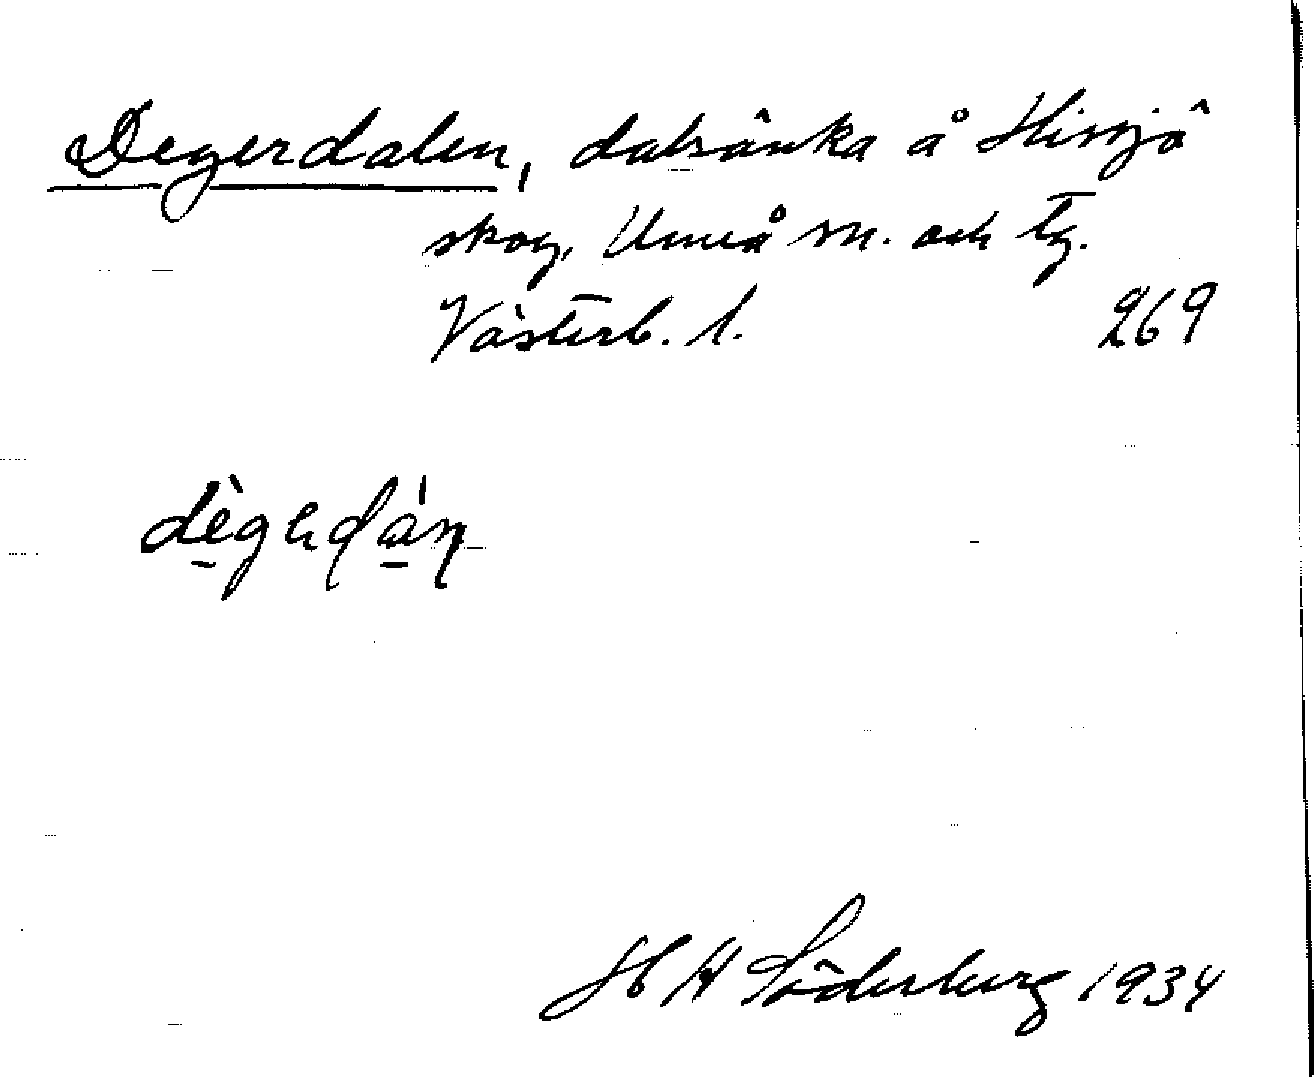 Degerdalen, dalsänka å Hissjö
skog, Umeå sn. och tg.
Västerb. l. 269
H H Söderberg 1934